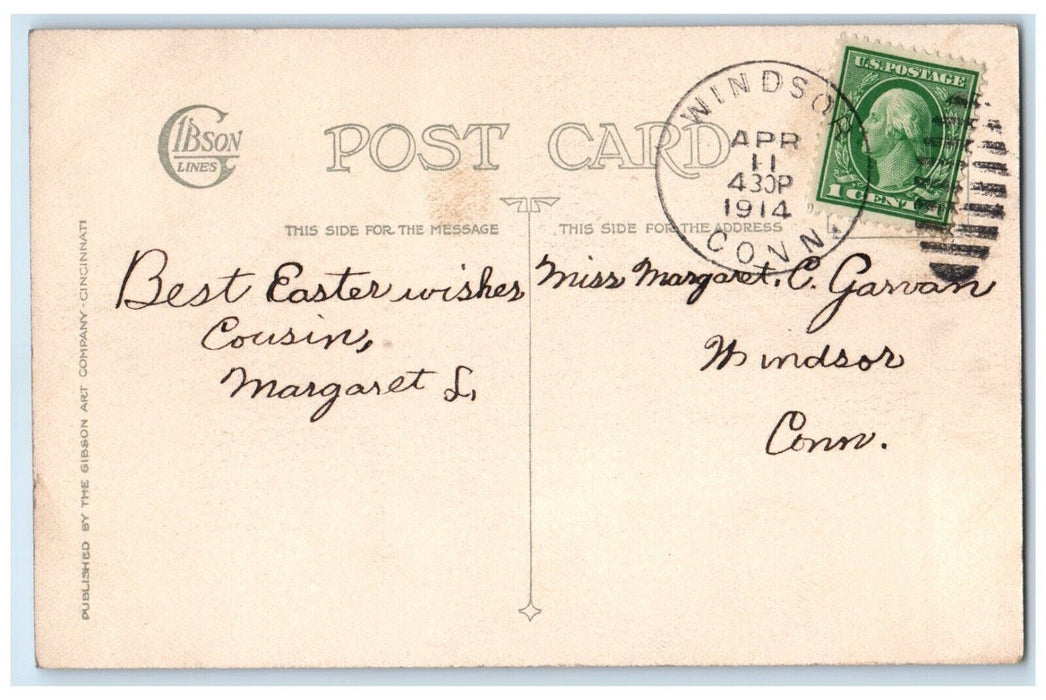 GIBSON
LINES
POST CARD
WINDSOR
CONN.
APR
11
430P
1914
U.S. POSTAGE
1 CENT 1
THIS SIDE FOR THE MESSAGE
THIS SIDE FOR THE ADDRESS
Best Easter wishes
Cousin,
Margaret L,
Miss Margaret. C. Garvan
Windsor
Conn.
PUBLISHED BY THE GIBSON ART COMPANY-CINCINNATI